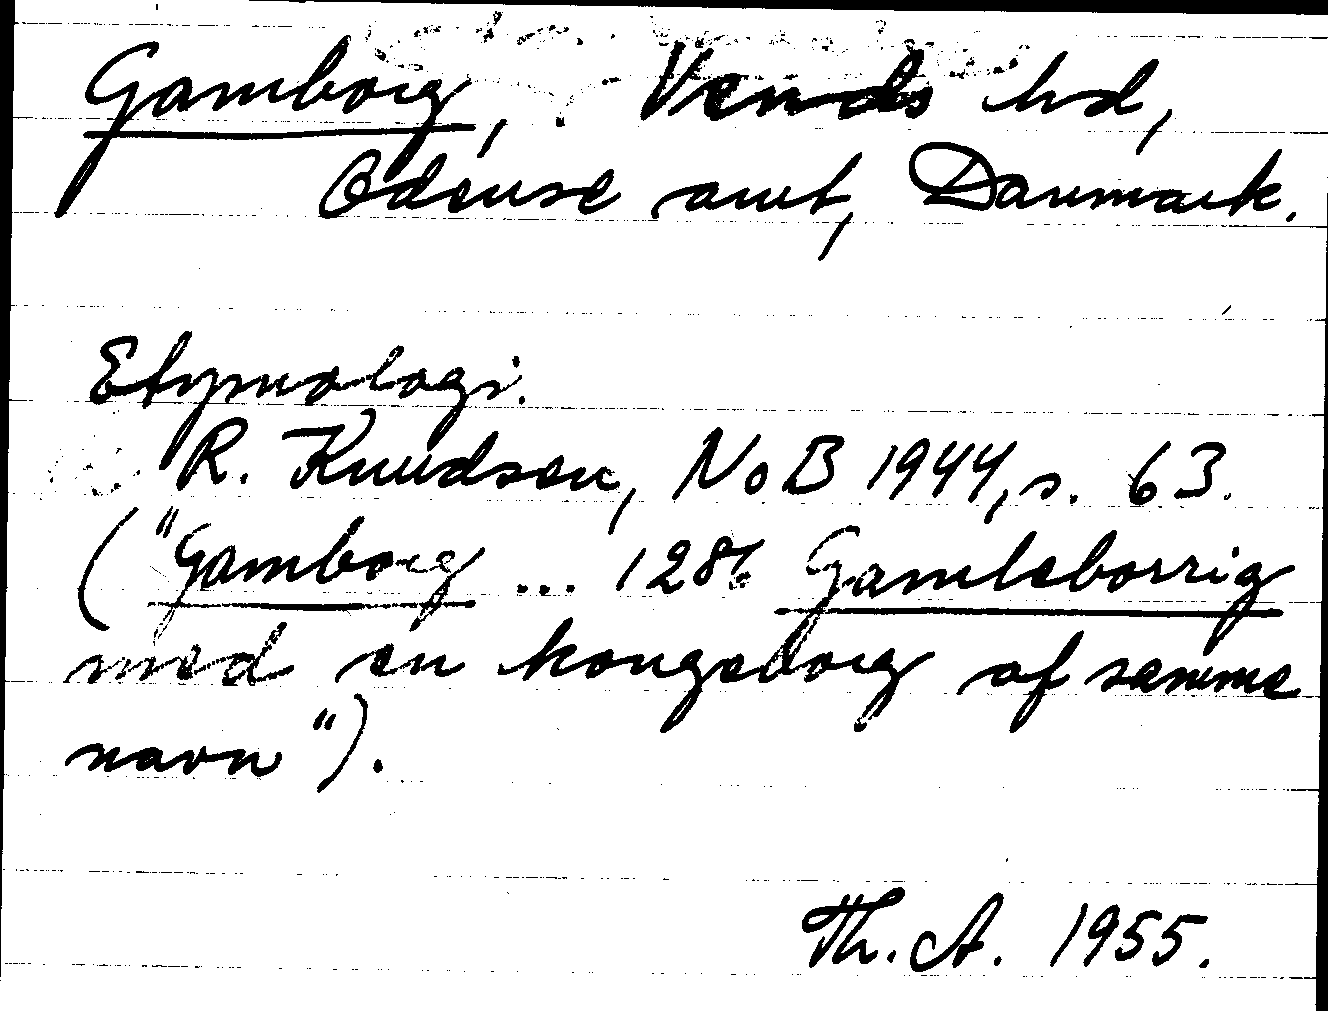 Gamborg, Vends hd,
Odense amt, Danmark.
Etymologi.
R. Knudsen, NoB 1944, s. 63.
("Gamborg ... 1286 Gamleborrig
med en kongeborg af samme
navn").
Th. A. 1955.